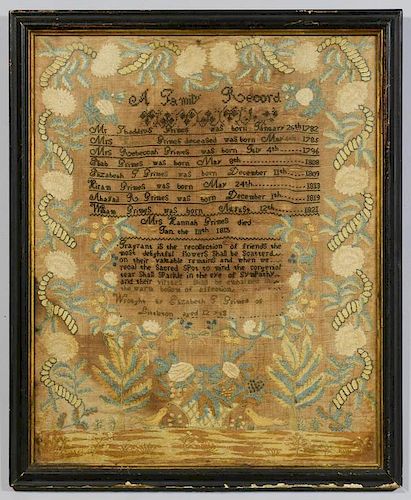 A Family Record
Mr Thaddeus Grimes was born January 26th 1782
Mrs Grimes deceased was born March 1785
Mrs Rebeccah Grimes was born July 4th 1794
Grimes was born May 8th 1808
Elizabeth T Grimes was born December 11th 1809
Hiram Grimes was born May 24th 1813
Grimes was born December 1th 1819
William Grimes was born 12th 1821
Mrs Hannah Grimes died
Jan. the 18th 1815
Fragrant is the recollection of friends the
most delightful flowers Shall be Scatterd
on their valuable remains and when we
recal the Sacred Spot to mind the congenial
tear Shall Sparkle in the eye of Sympathy
and their virtues Shall be
the warm bosom of affection
Wrought by Elizabeth T Grimes of
Littleton aged 12 yrs